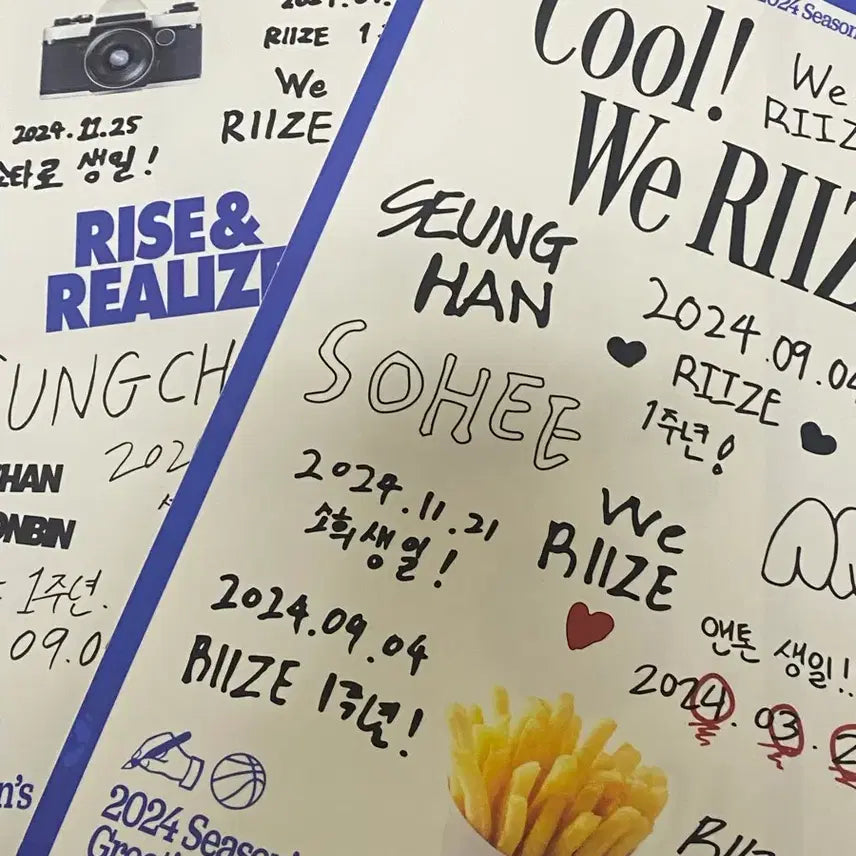 RIIZE 1
We
RIIZE
2024.11.25
쇼타로 생일!
RISE&
REALIZE
UNGCH
202
HAN
ONBIN
1주년.
09.0
n's
2024 Season
Cool!
We RIIZ
We
RIIZ
SEUNG
HAN
SOHEE
2024.09.04
RIIZE
1주년!
2024.11.21
소희 생일!
We
RIIZE
2024.09.04
RIIZE 1주년!
앤톤 생일!!
2024.03.2
RIIZ
2024 Season's
Greeti